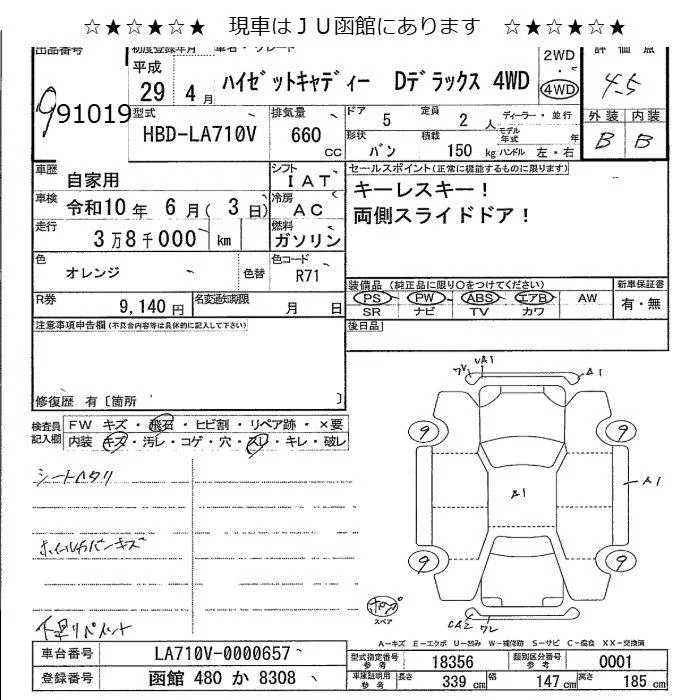 ☆★☆★☆★ 現車はＪＵ函館にあります ☆★☆★☆★
出品番号
91019
初度登録年月
平成
29 年 4 月
車名・グレード
ハイゼットキャディー Dデラックス 4WD
2WD
・
4WD
評価点
4.5
型式
HBD-LA710V
排気量
660 CC
ドア 5
定員 2 人
ディーラー・並行
モデル年式 年
形状 バン
積載 150 kg
ハンドル 左・右
外装 内装
B B
車歴 自家用
シフト IAT
車検 令和10年 6月( 3日)
冷房 AC
走行 3万8千000 km
燃料 ガソリン
色 オレンジ 色替
色コード R71
R券 9,140円
名変通知期限 月 日
セールスポイント(正常に機能するものに限ります)
キーレスキー！
両側スライドドア！
装備品 (純正品に限り○をつけてください)
PS PW ABS エアB AW
SR ナビ TV カワ
新車保証書
有・無
後日品
注意事項申告欄(不具合内容等は具体的に記入して下さい)
修復歴 有〔箇所 〕
検査員記入欄
FW キズ・飛石・ヒビ割・リペア跡・×要
内装 キズ・汚レ・コゲ・穴・スレ・キレ・破レ
シートヘタリ
ホイールカバーキズ
下廻リペイント
UA1
A1
9
9
A1
A1
9
9
スペア
A－キズ E－エクボ U－凹み W－補修跡 S－サビ C－腐食 XX－交換済
車台番号 LA710V-0000657
登録番号 函館 480 か 8308
型式指定番号 参考 18356
類別区分番号 参考 0001
車庫証明用 参考 長さ 339 cm 幅 147 cm 高さ 185 cm